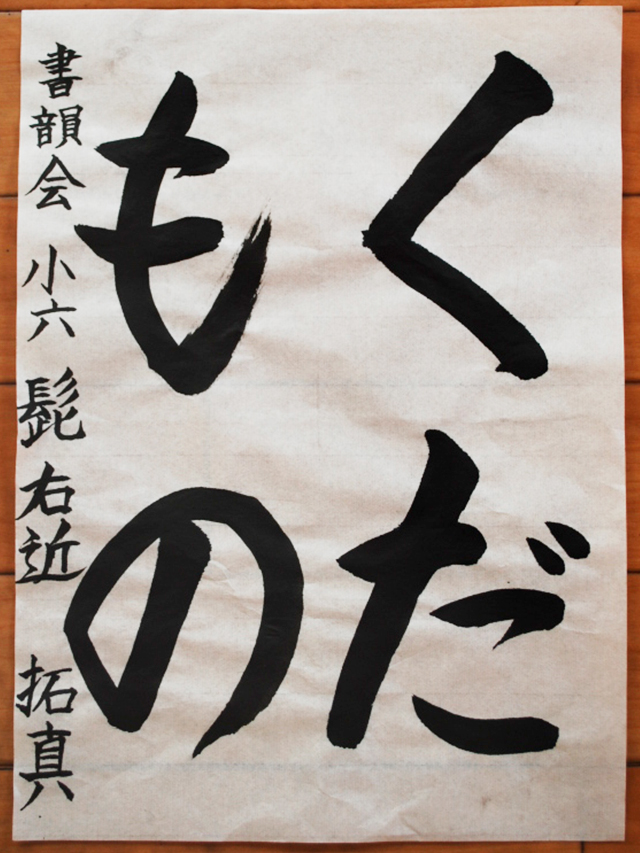 くだ
もの
書韻会 小六 髭右近 拓真